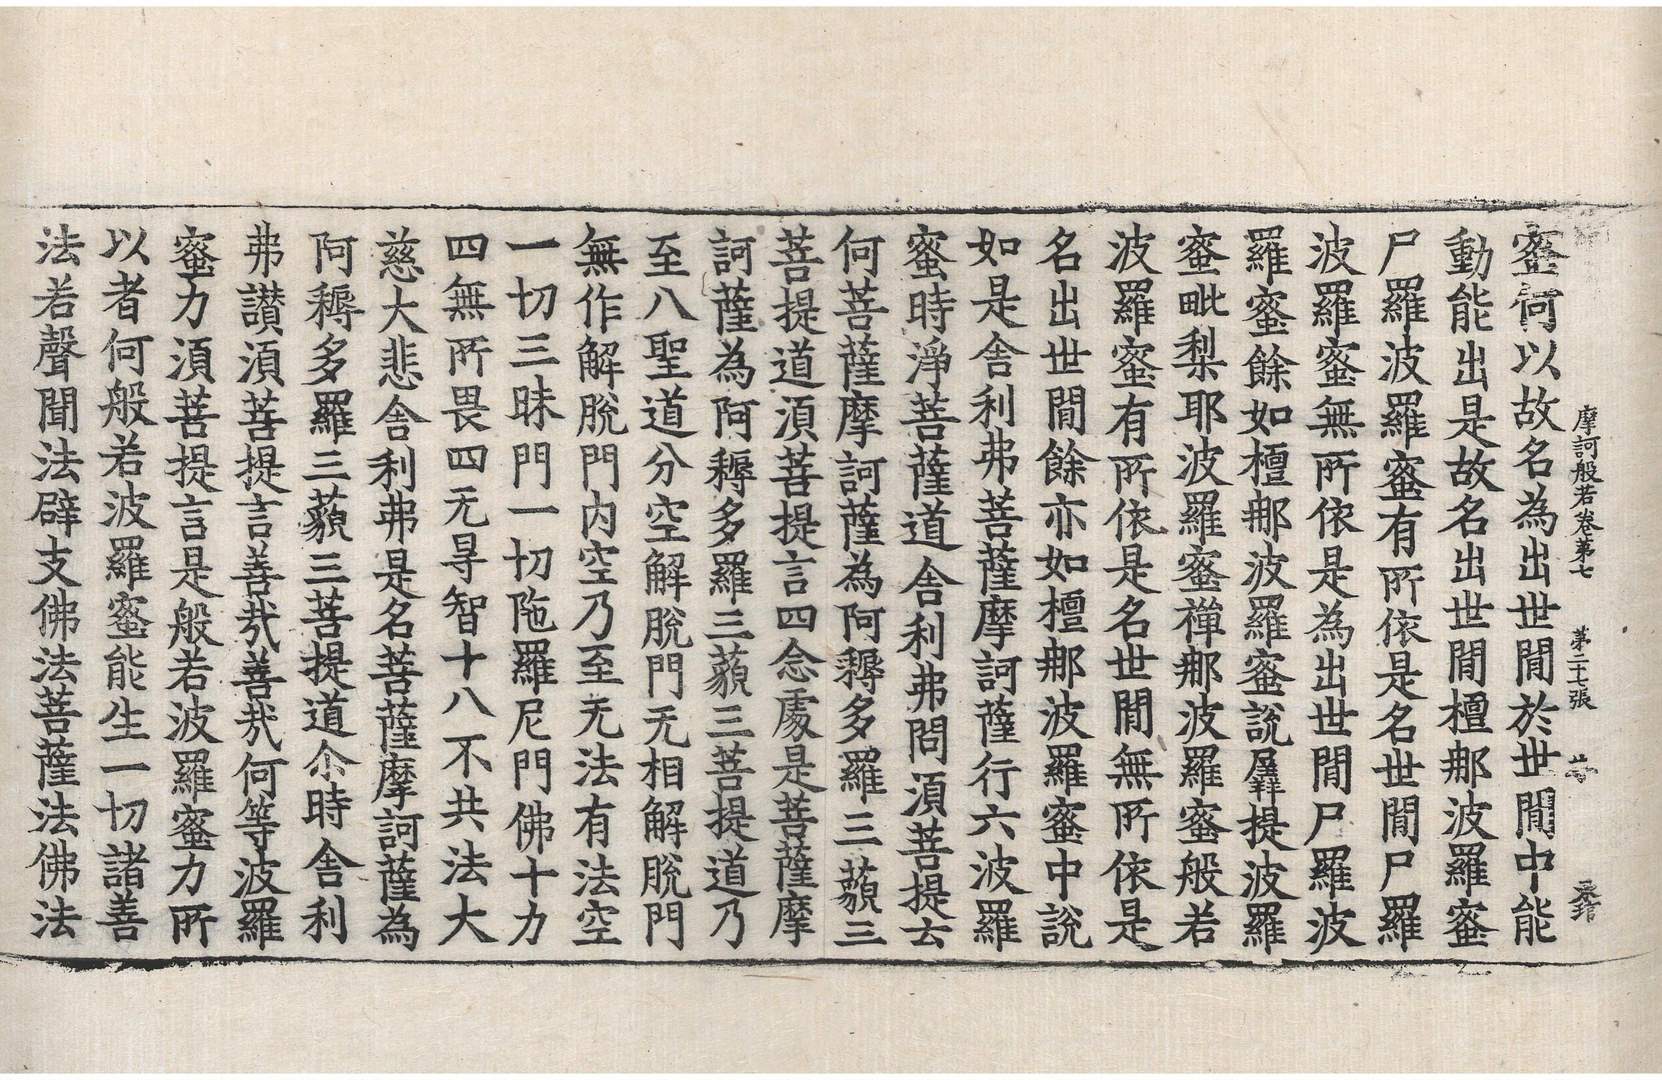 摩訶般若卷第七　第二十七張
蜜何以故名為出世閒於世閒中能
動能出是故名出世閒檀𨙻波羅蜜
尸羅波羅蜜有所依是名世閒尸羅
波羅蜜無所依是為出世閒尸羅波
羅蜜餘如檀𨙻波羅蜜說羼提波羅
蜜毗梨耶波羅蜜禪𨙻波羅蜜般若
波羅蜜有所依是名世閒無所依是
名出世閒餘亦如檀𨙻波羅蜜中說
如是舍利弗菩薩摩訶薩行六波羅
蜜時淨菩薩道舍利弗問湏菩提云
何菩薩摩訶薩為阿耨多羅三藐三
菩提道湏菩提言四念處是菩薩摩
訶薩為阿耨多羅三藐三菩提道乃
至八聖道分空解脫門无相解脫門
無作解脫門内空乃至无法有法空
一切三昧門一切陁羅尼門佛十力
四無所畏四无㝵智十八不共法大
慈大悲舍利弗是名菩薩摩訶薩為
阿耨多羅三藐三菩提道尒時舍利
弗讃湏菩提言善㢤善㢤何等波羅
蜜力湏菩提言是般若波羅蜜力所
以者何般若波羅蜜能生一切諸善
法若聲聞法辟支佛法菩薩法佛法